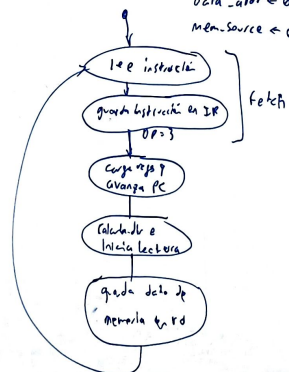 mem_source ←
lee instrucción
Fetch
guarda instrucción en IR
OP=3
carga regs y
avanza PC
Calcula dir e
Inicia lectura
guarda dato de
memoria en rd